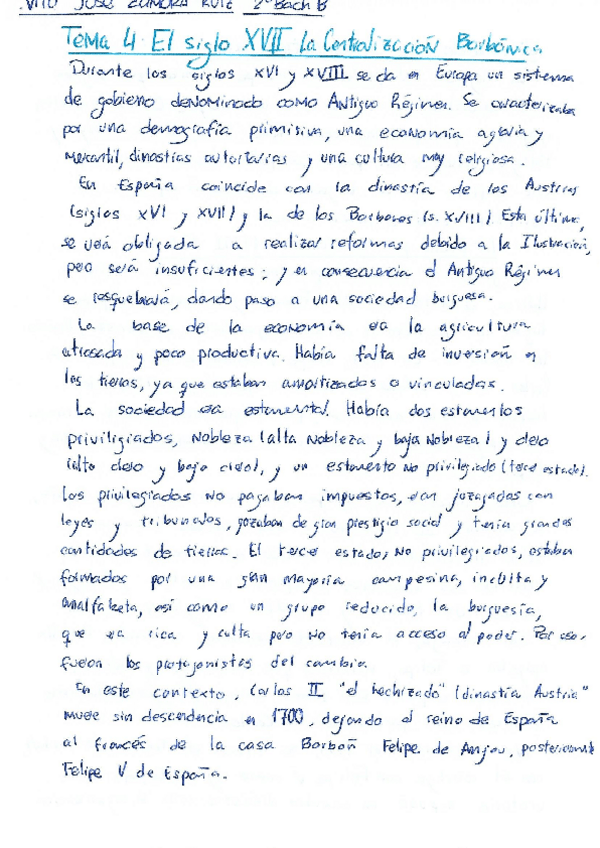 VITO JOSÉ ZAMORA RUIZ 2º Bach B
Tema 4 El siglo XVII La Centralización Borbónica
Durante los siglos XVI y XVIII se da en Europa un sistema
de gobierno denominado como Antiguo Régimen. Se caracterizaba
por una demografía primitiva, una economía agraria y
mercantil, dinastías autoritarias y una cultura muy religiosa.
En España coincide con la dinastía de los Austrias
(siglos XVI y XVII) y la de los Borbones (s. XVIII) Esta última,
se verá obligada a realizar reformas debido a la Ilustración,
pero será insuficientes; y en consecuencia el Antiguo Régimen
se resquebrajará, dando paso a una sociedad burguesa.
La base de la economía era la agricultura
atrasada y poco productiva. Había falta de inversión en
las tierras, ya que estaban amortizadas o vinculadas.
La sociedad era estamental. Había dos estamentos
priviligiados, nobleza (alta nobleza y baja nobleza) y clero
(alto clero y bajo clero), y un estamento no privilegiado (tercer estado).
Los privilegiados no pagaban impuestos, eran juzgados con
leyes y tribunales, gozaban de gran prestigio social y tenía grandes
cantidades de tierras. El tercer estado, no privilegiados, estaban
formados por una gran mayoría campesina, inculta y
analfabeta, así como un grupo reducido, la burguesía,
que era rica y culta pero no tenía acceso al poder. Por eso,
fueron los protagonistas del cambio.
En este contexto, Carlos II "el hechizado" (dinastía Austria"
muere sin descendencia en 1700, dejando el reino de España
al francés de la casa Borboñ Felipe de Anjou, posteriormente
Felipe V de España.